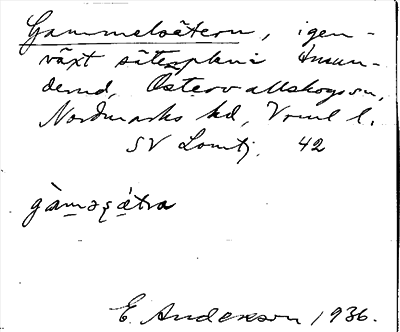 Gammelsätern, igen-
växt säterplan i Åmun-
derud, Östervallskogs sn,
Nordmarks hd, Vrml l.
SV Lomtj. 42
gàməsǻtra
E. Anderson 1936.